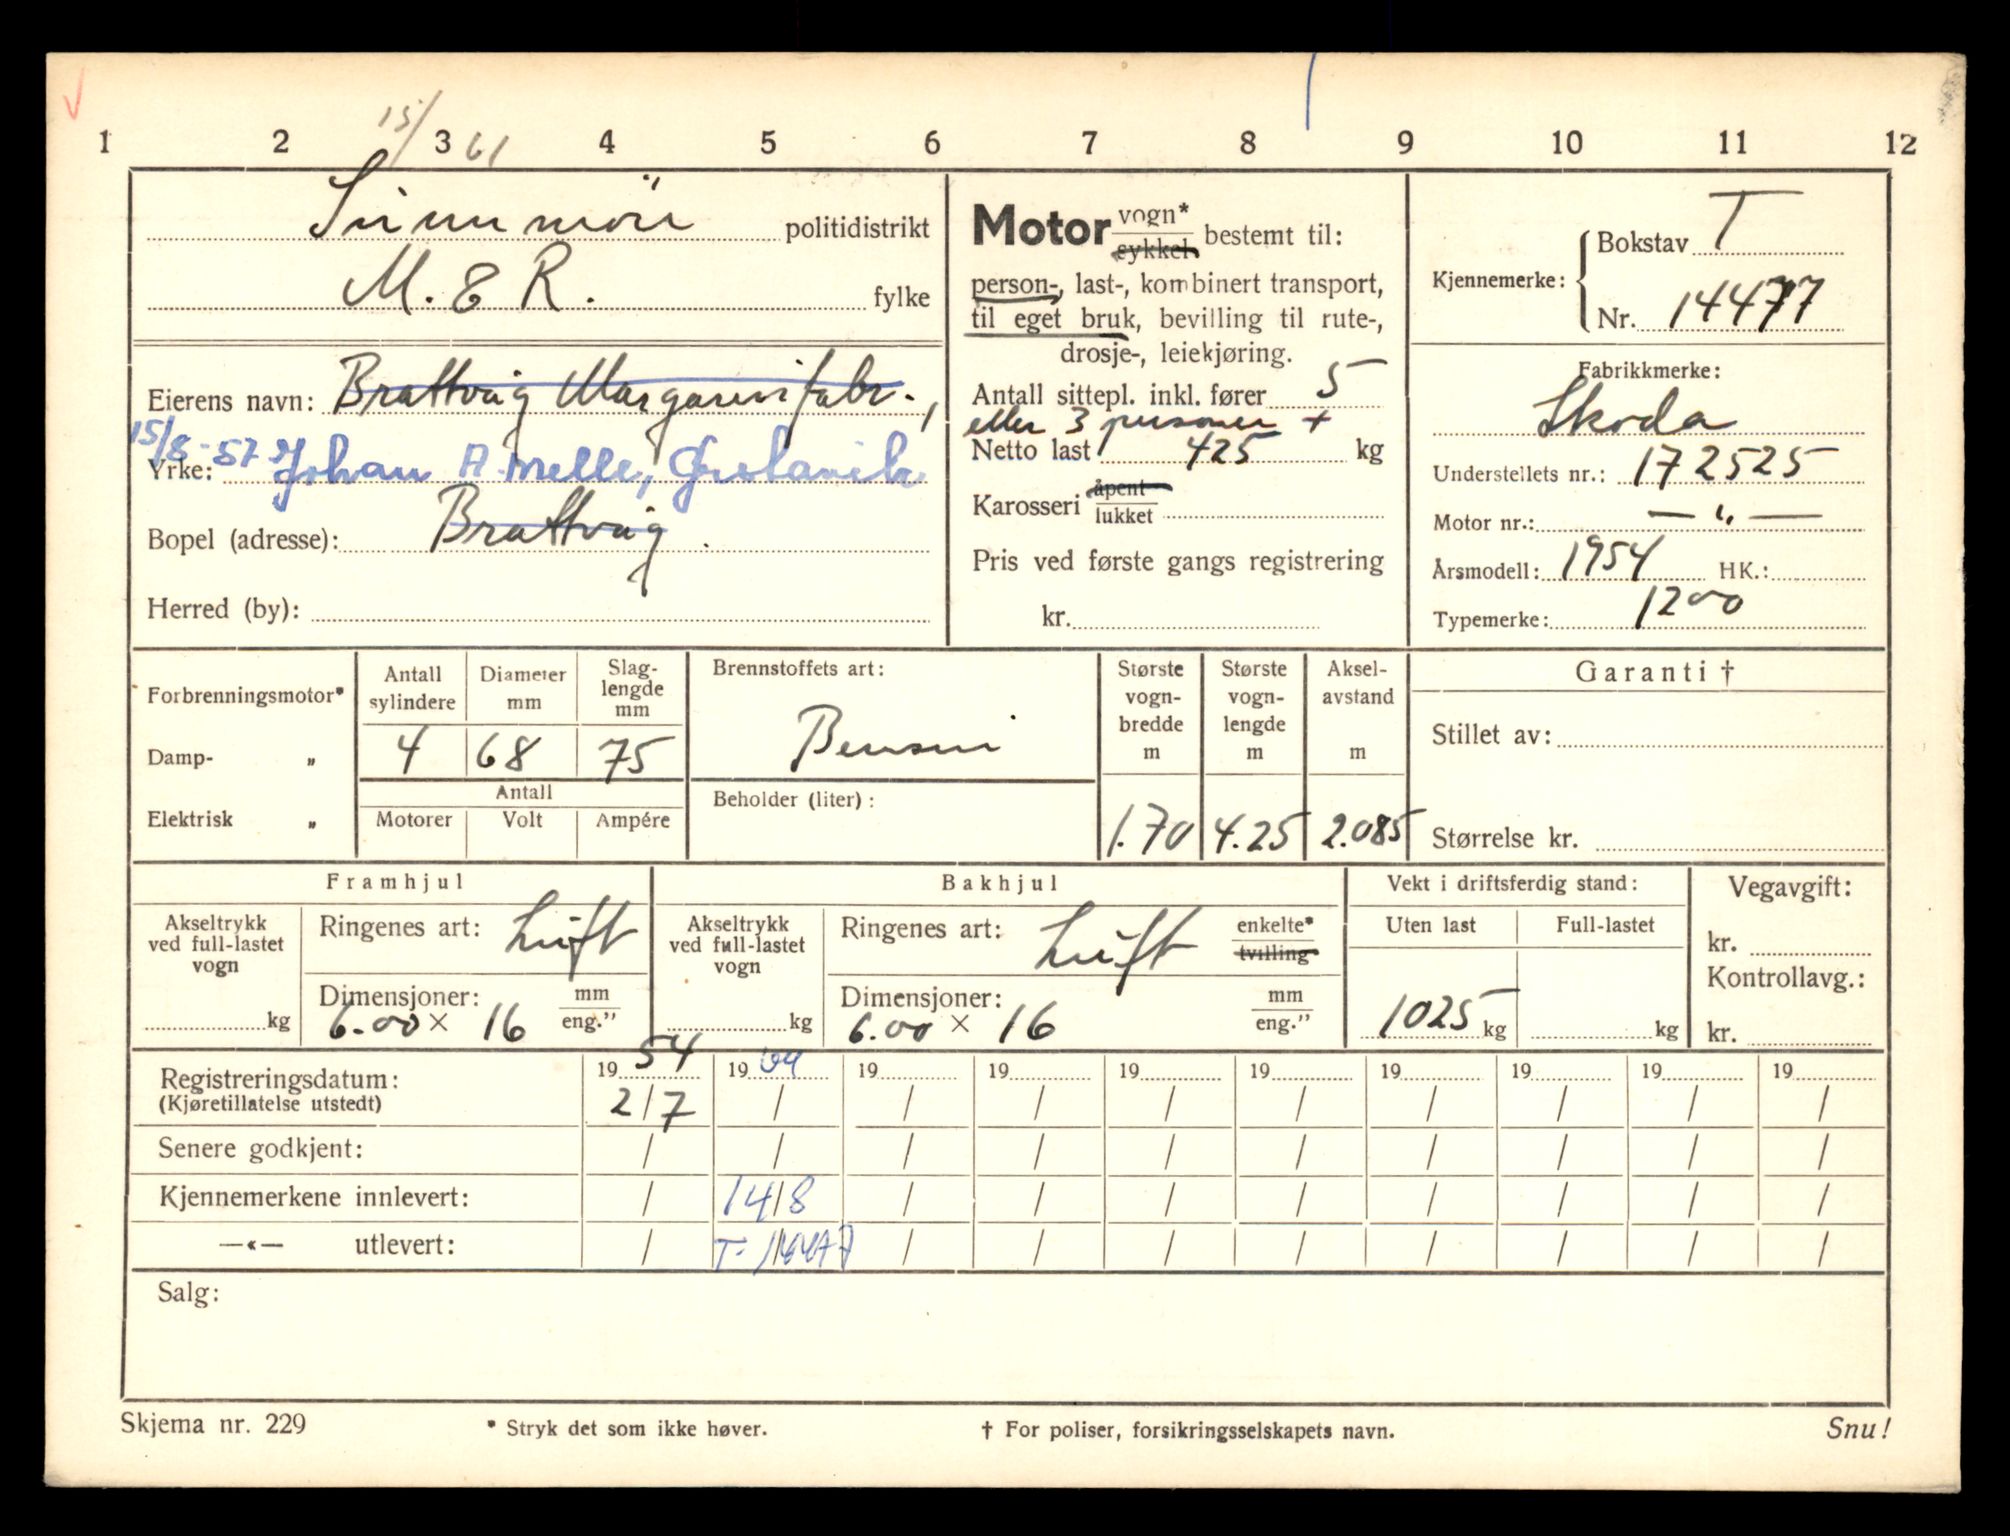 15/3 61
1 2 3 4 5 6 7 8 9 10 11 12
Sunnmöre politidistrikt
M. & R. fylke
Eierens navn: Brattvåg Margarinfabr.,
15/8-57 Johan A. Melle,
Yrke:
Bopel (adresse): Brattvåg.
Herred (by):
Motor vogn*
sykkel bestemt til:
person-, last-, kombinert transport,
til eget bruk, bevilling til rute-,
drosje-, leiekjøring.
Antall sittepl. inkl. fører 5
eller 3 personer +
Netto last 425 kg
Karosseri åpent
lukket
Pris ved første gangs registrering
kr.
Kjennemerke: Bokstav T
Nr. 14477
Fabrikkmerke:
Skoda
Understellets nr.: 172525
Motor nr.: — " —
Årsmodell: 1954 HK.:
Typemerke: 1200
Forbrenningsmotor*
Damp- "
Elektrisk "
Antall sylindere
Diameter mm
Slag-lengde mm
4 68 75
Antall
Motorer Volt Ampére
Brennstoffets art:
Bensin
Beholder (liter):
Største vogn-bredde m
Største vogn-lengde m
Aksel-avstand m
1.70 4.25 2.085
Garanti †
Stillet av:
Størrelse kr.
Framhjul
Akseltrykk ved full-lastet vogn
kg
Ringenes art: Luft
Dimensjoner: mm
6.00 × 16 eng."
Bakhjul
Akseltrykk ved full-lastet vogn
kg
Ringenes art: Luft enkelte*
tvilling
Dimensjoner: mm
6.00 × 16 eng."
Vekt i driftsferdig stand:
Uten last Full-lastet
1025 kg kg
Vegavgift:
kr.
Kontrollavg.:
kr.
Registreringsdatum: 19 54 19 64 19 19 19 19 19 19 19 19
(Kjøretillatelse utstedt) 2/7 / / / / / / / / /
Senere godkjent: / / / / / / / / / /
Kjennemerkene innlevert: / 14/8 / / / / / / / /
—«— utlevert: / T-14477 / / / / / / / /
Salg:
Skjema nr. 229 * Stryk det som ikke høver. † For poliser, forsikringsselskapets navn. Snu!